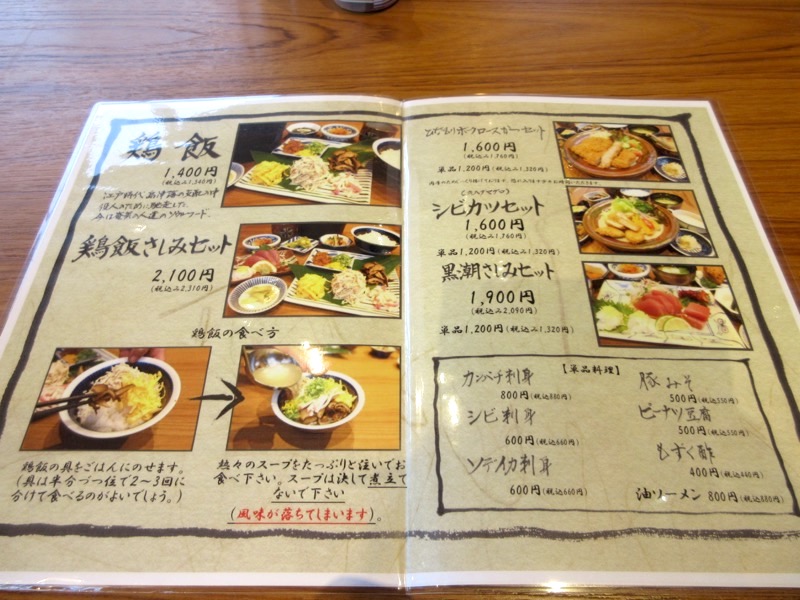 鶏飯
1,400円
(税込み1,540円)
江戸時代、
役人のために馳走した、
鶏飯さしみセット
2,100円
(税込み2,310円)
鶏飯の食べ方
鶏飯の具をごはんにのせます。
(具は半分づつ位で2〜3回に
分けて食べるのがよいでしょう。)
熱々のスープをたっぷりと注いでお
食べ下さい。スープは決して煮立て
ないで下さい
(風味が落ちてしまいます)。
ポークロースカツセット
1,600円
(税込み1,760円)
単品1,200円(税込み1,320円)
シビカツセット
1,600円
(税込み1,760円)
単品1,200円(税込み1,320円)
黒潮さしみセット
1,900円
(税込み2,090円)
単品1,200円(税込み1,320円)
【単品料理】
カンパチ刺身
800円(税込880円)
シビ刺身
600円(税込660円)
ソデイカ刺身
600円(税込660円)
豚みそ
500円(税込550円)
ピーナツ豆腐
500円(税込550円)
もずく酢
400円(税込440円)
油ソーメン 800円(税込880円)